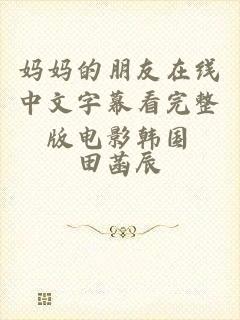 妈妈的朋友在线
中文字幕看完整
版电影韩国
田菡辰